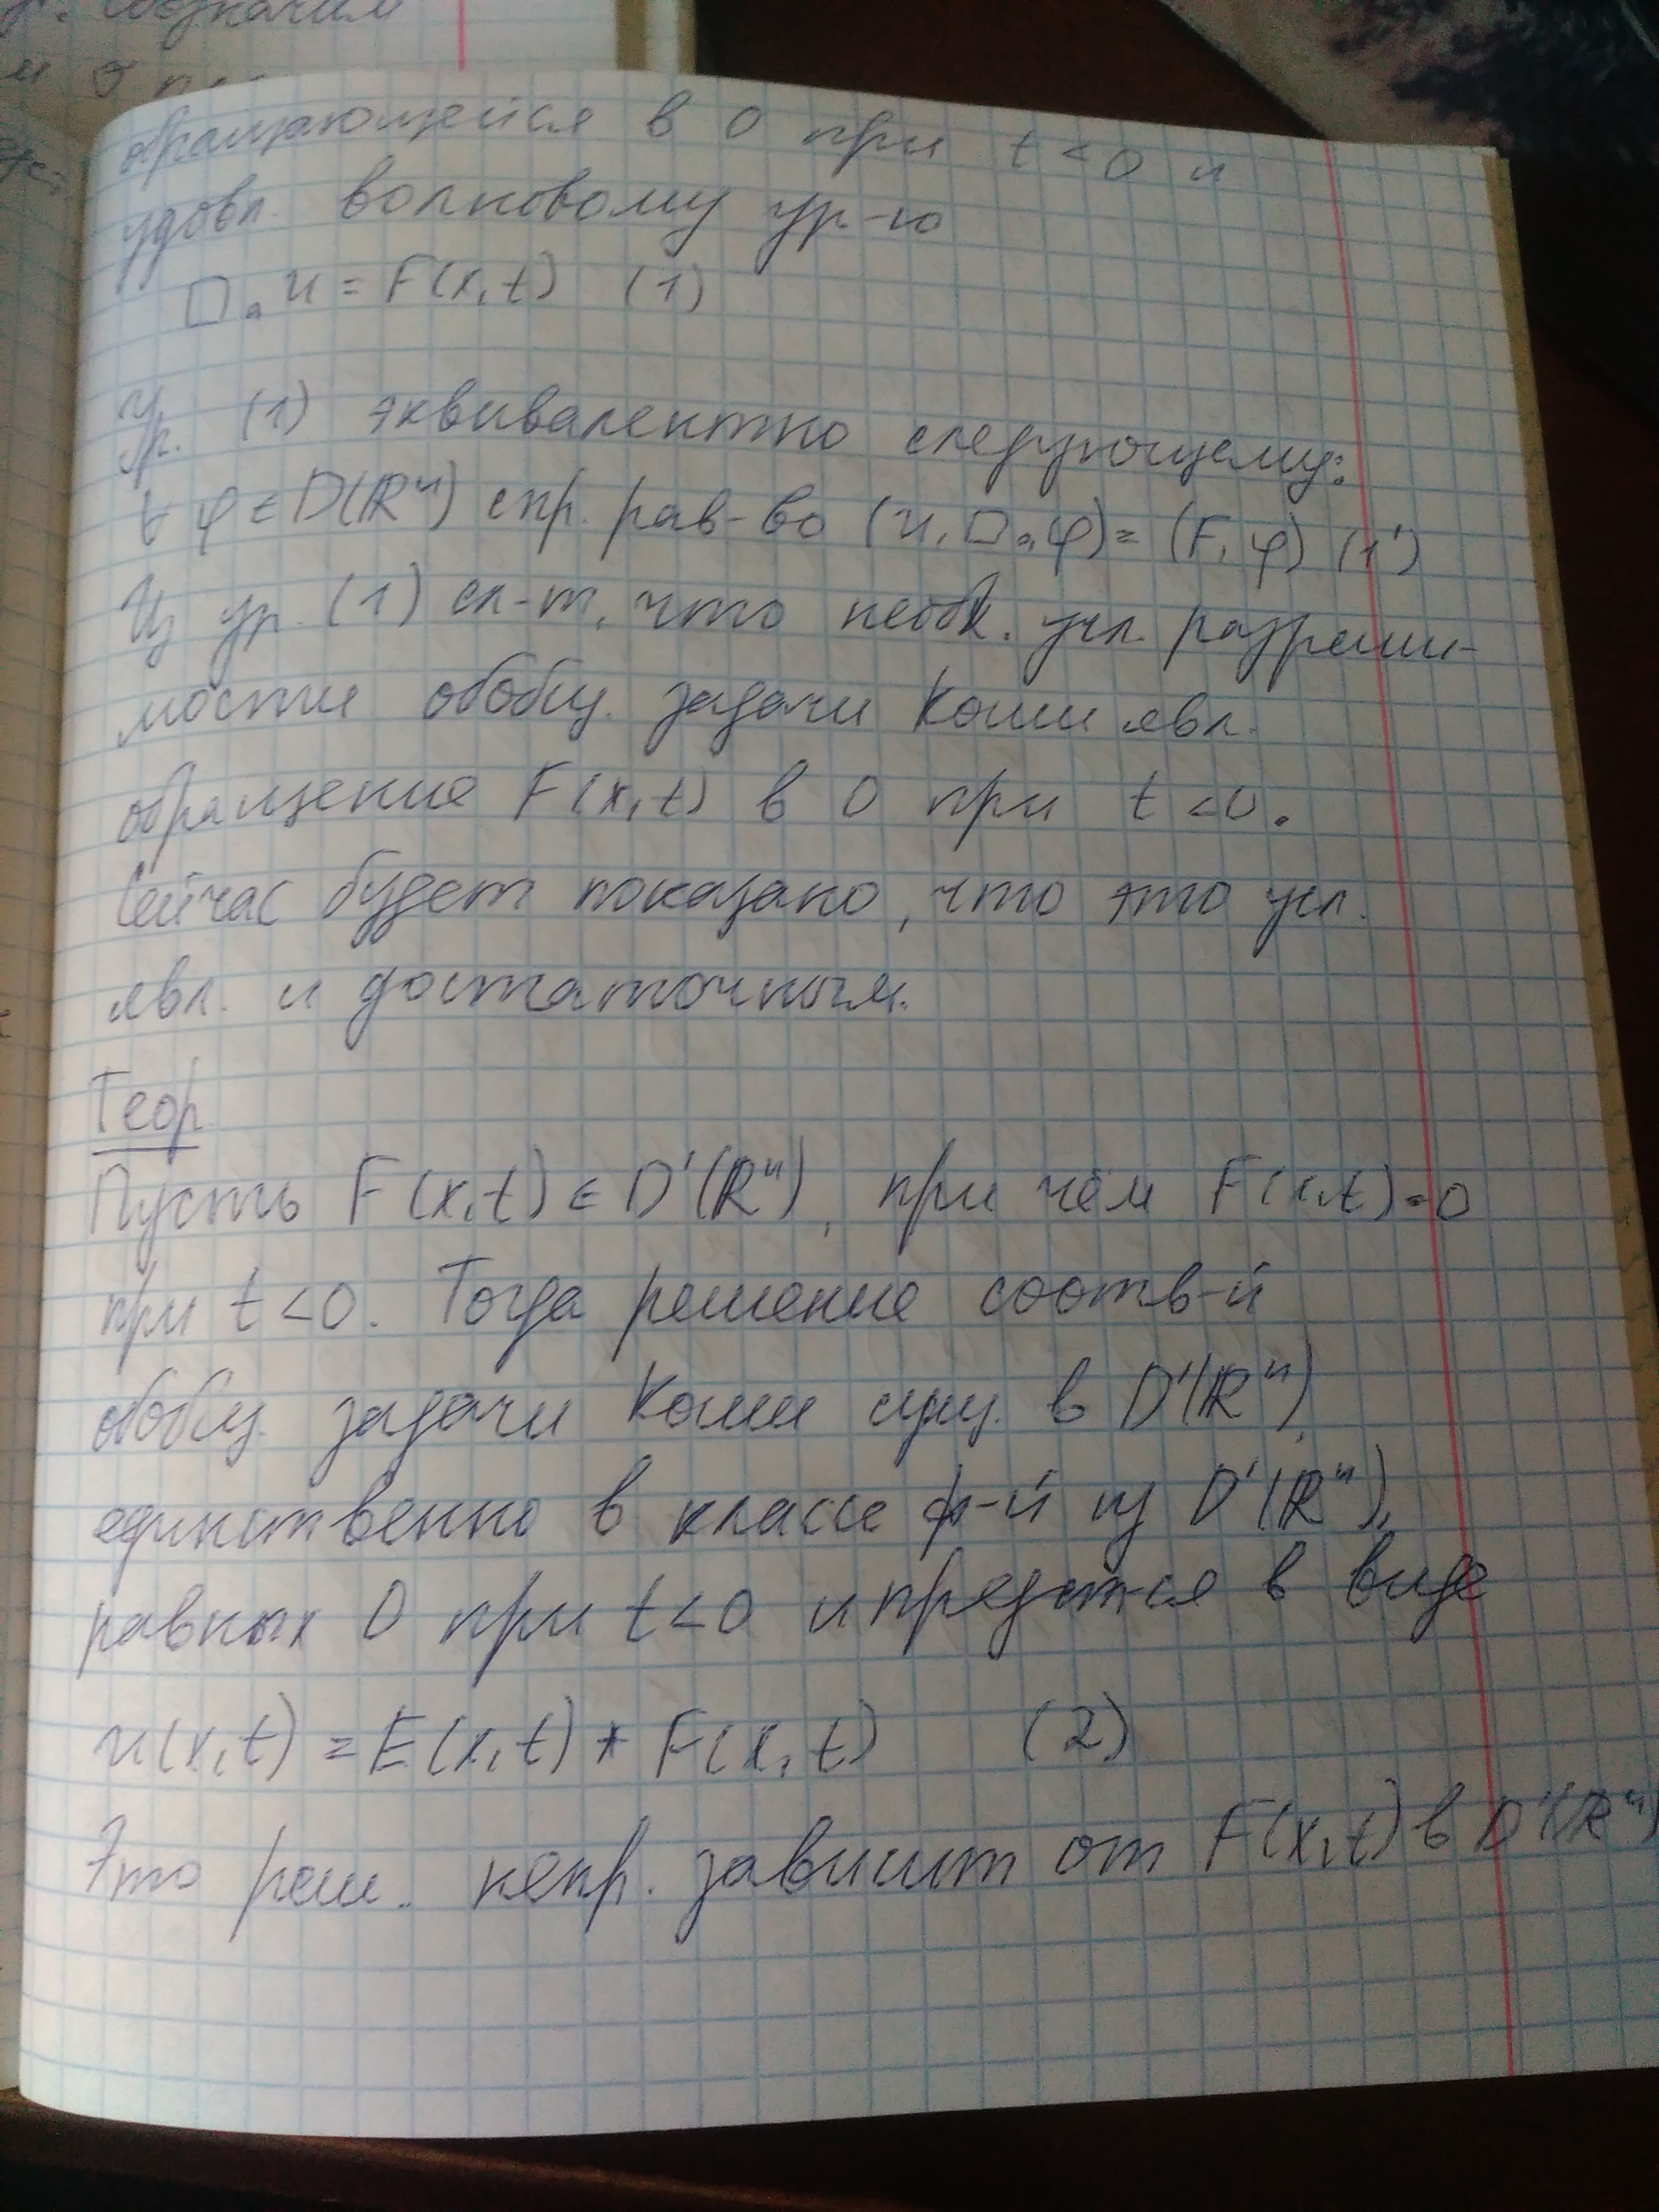 обозначим
и о
обращающейся в 0 при t < 0 и
удовл. волновому ур-ю
□ₐ u = F(x,t) (1)
Ур. (1) эквивалентно следующему:
∀ φ ∈ D(ℝⁿ) спр. рав-во (u, □ₐφ) = (F, φ) (1')
Из ур. (1) сл-т, что необх. усл. разреши-
мости обобщ. задачи Коши явл.
обращение F(x,t) в 0 при t < 0.
Сейчас будет показано, что это усл.
явл. и достаточным.
Теор.
Пусть F(x,t) ∈ D'(ℝⁿ), при чём F(x,t) = 0
при t < 0. Тогда решение соотв-й
обобщ. задачи Коши сущ. в D'(ℝⁿ),
единственно в классе ф-й из D'(ℝⁿ),
равных 0 при t < 0 и предст-ся в виде
u(x,t) = E(x,t) * F(x,t) (2)
Это реш. непр. зависит от F(x,t) в D'(ℝⁿ)